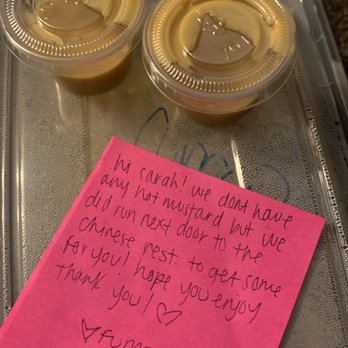 hi sarah! we dont have
any hot mustard but we
did run next door to the
chinese rest. to get some
for you! hope you enjoy
thank you! ♡